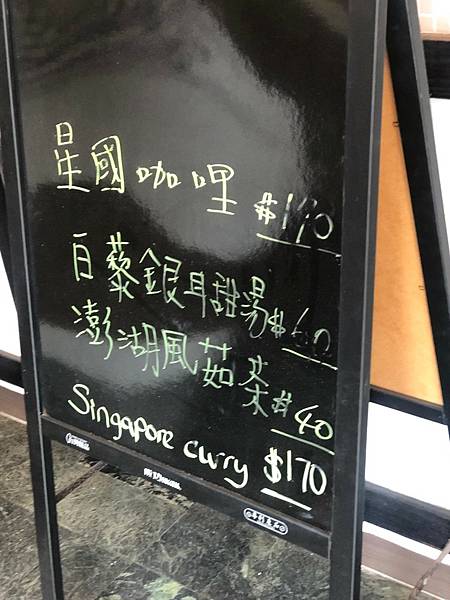 星國咖哩 $170
白藜銀耳甜湯 $60
澎湖風茹茶 $40
Singapore curry $170